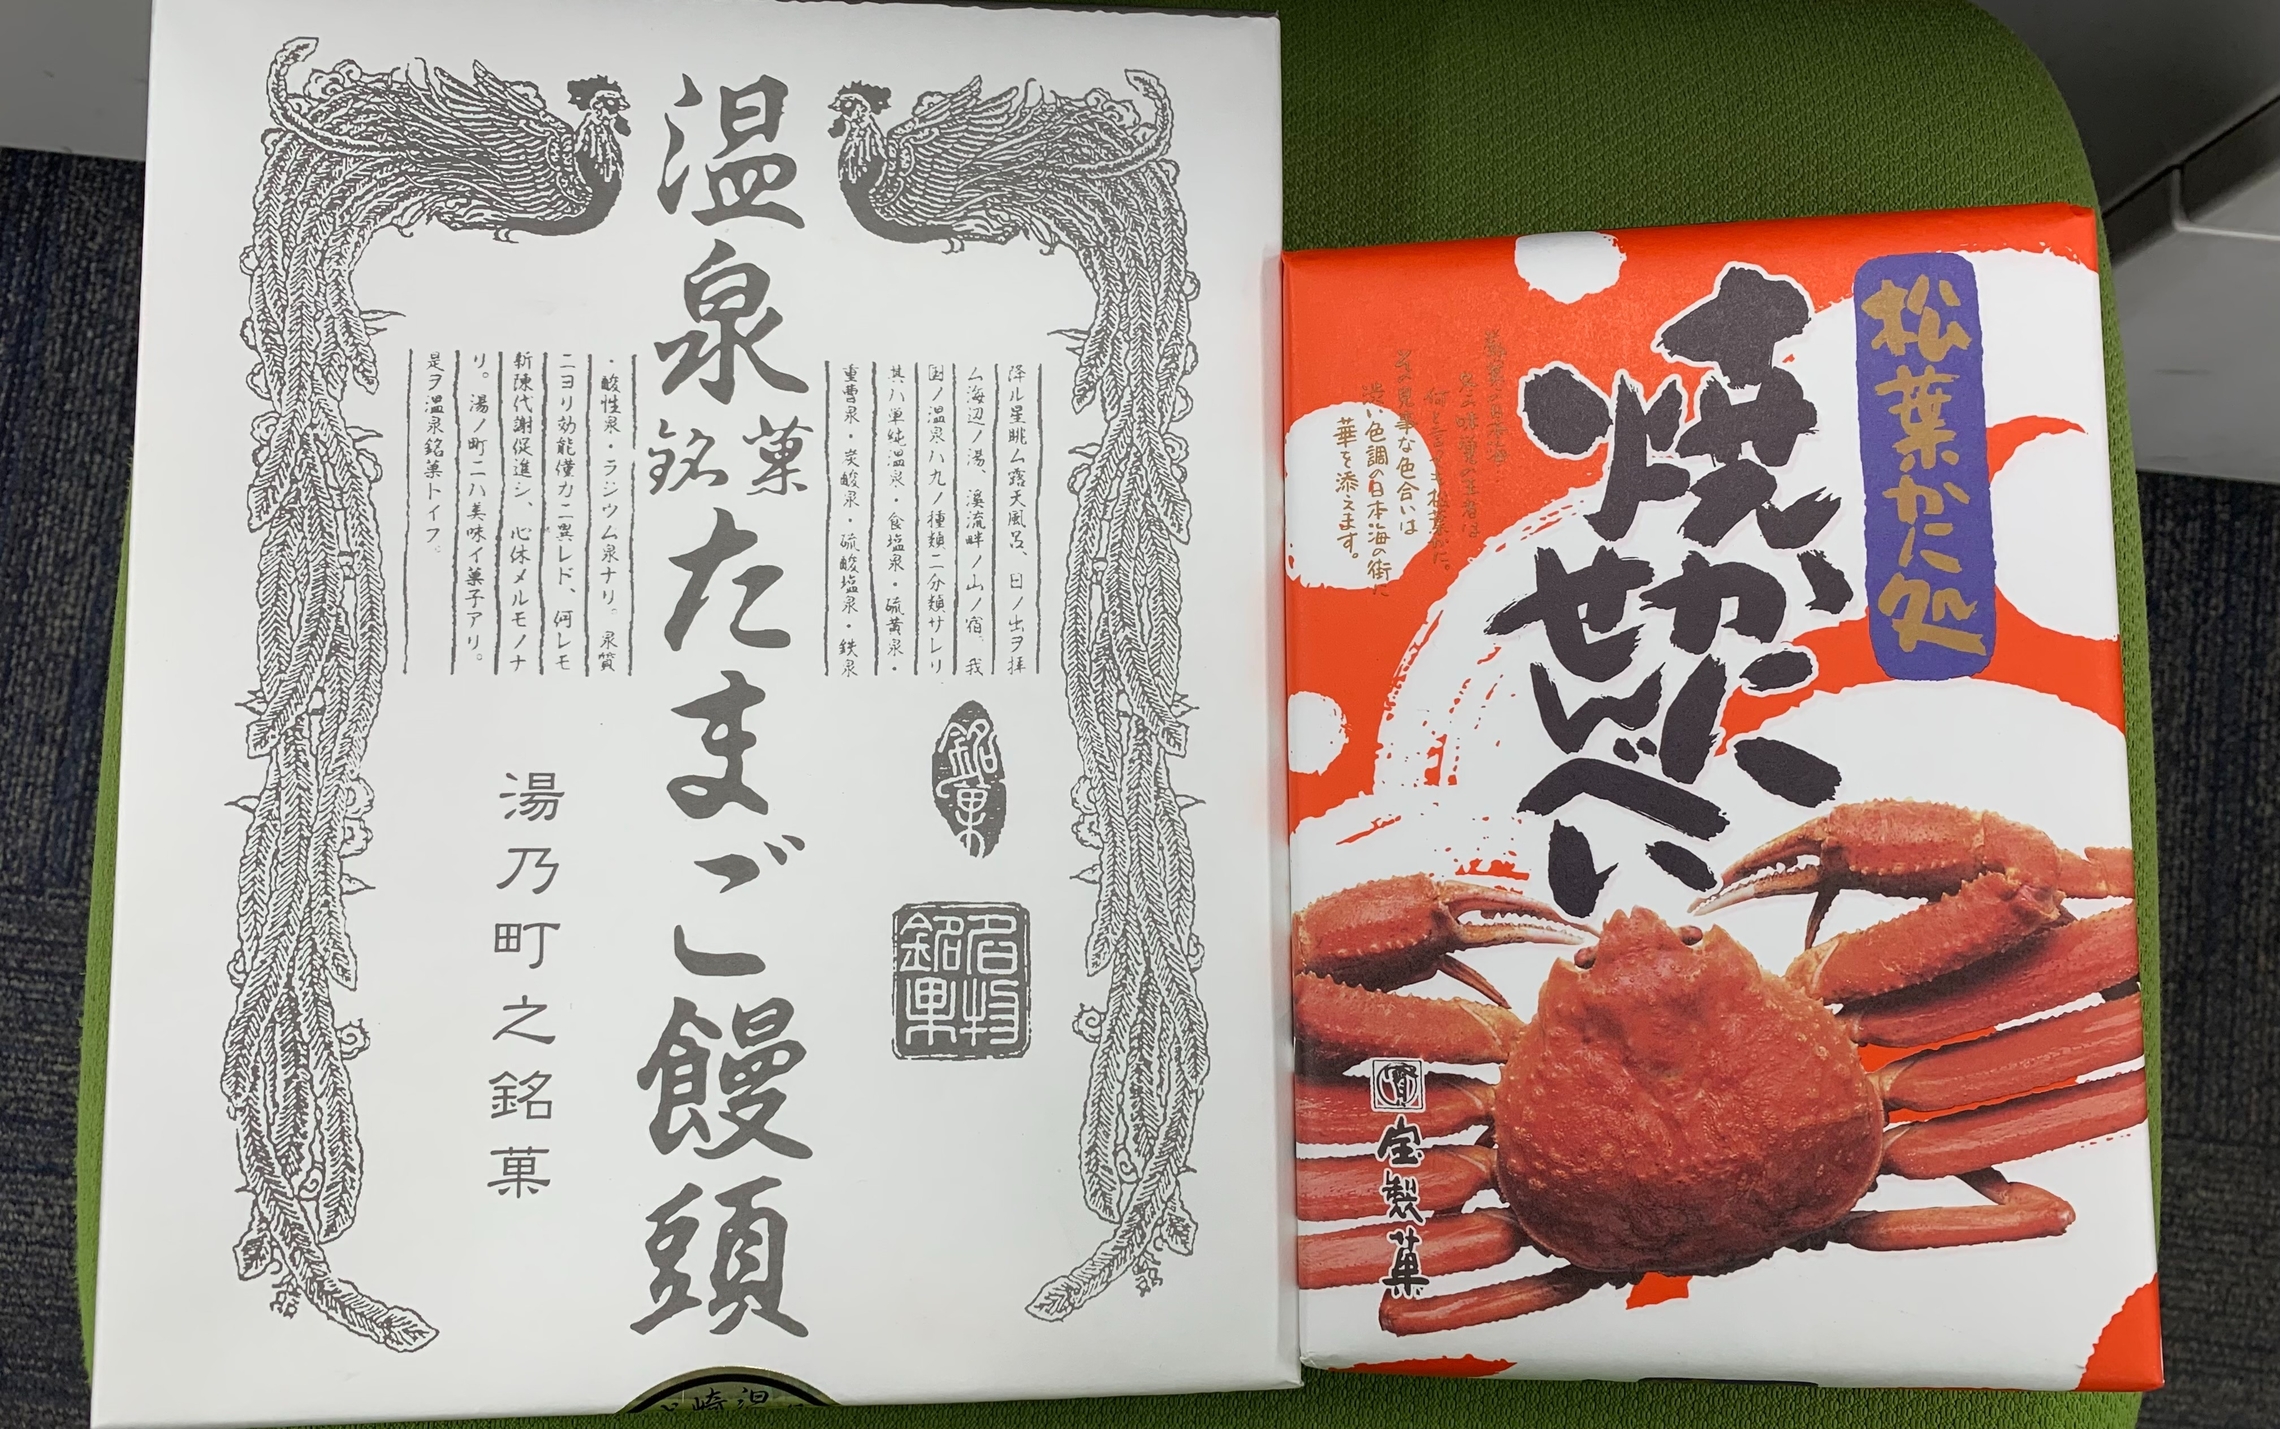 温泉
銘菓
たまご饅頭
降ル星眺ム露天風呂、日ノ出ヲ拝
ム海辺ノ湯、渓流畔ノ山ノ宿。我
国ノ温泉ハ九ノ種類ニ分類サレリ
其ハ単純温泉・食塩泉・硫黄泉・
重曹泉・炭酸泉・硫酸塩泉・鉄泉
・酸性泉・ラジウム泉ナリ。泉質
ニヨリ効能僅カニ異レド、何レモ
新陳代謝促進シ、心休メルモノナ
リ。湯ノ町ニハ美味イ菓子アリ。
是ヲ温泉銘菓トイフ。
銘菓
名物
銘菓
湯乃町之銘菓
崎温
松葉かに処
焼かに
せんべい
その見事な色合いは
渋い色調の日本海の街に
華を添えます。
宝製菓